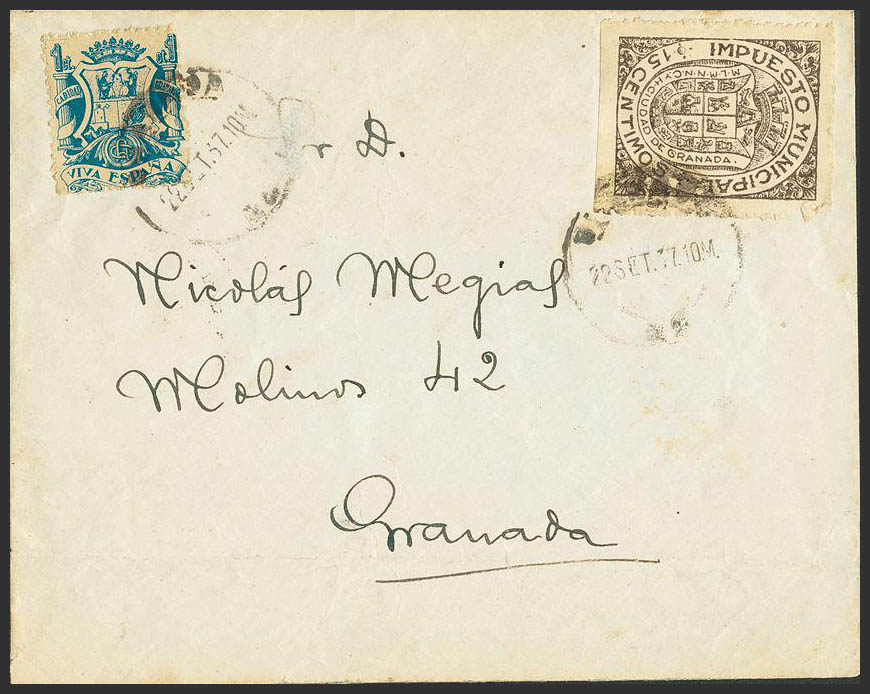 1 ct. ct. 1
CARIDAD
VIVA ESPAÑA
22 SET. 37.10M
IMPUESTO MUNICIPAL
15 CENTIMOS
M.L.M.N.N.C Y H. CIUDAD DE GRANADA.
22 SET. 37.10M.
r D.
Nicolás Megias
Molinos 42
Granada